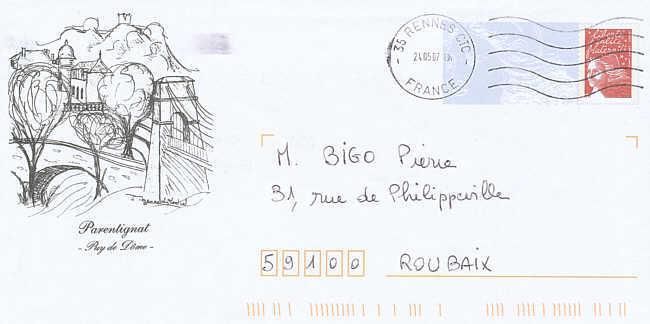 35 RENNES CTC
24.05.07
FRANCE
Liberté
Égalité
Fraternité
M. BIGO Pierre
31, rue de Philippeville
59100 ROUBAIX
Parentignat
- Puy de Dôme -